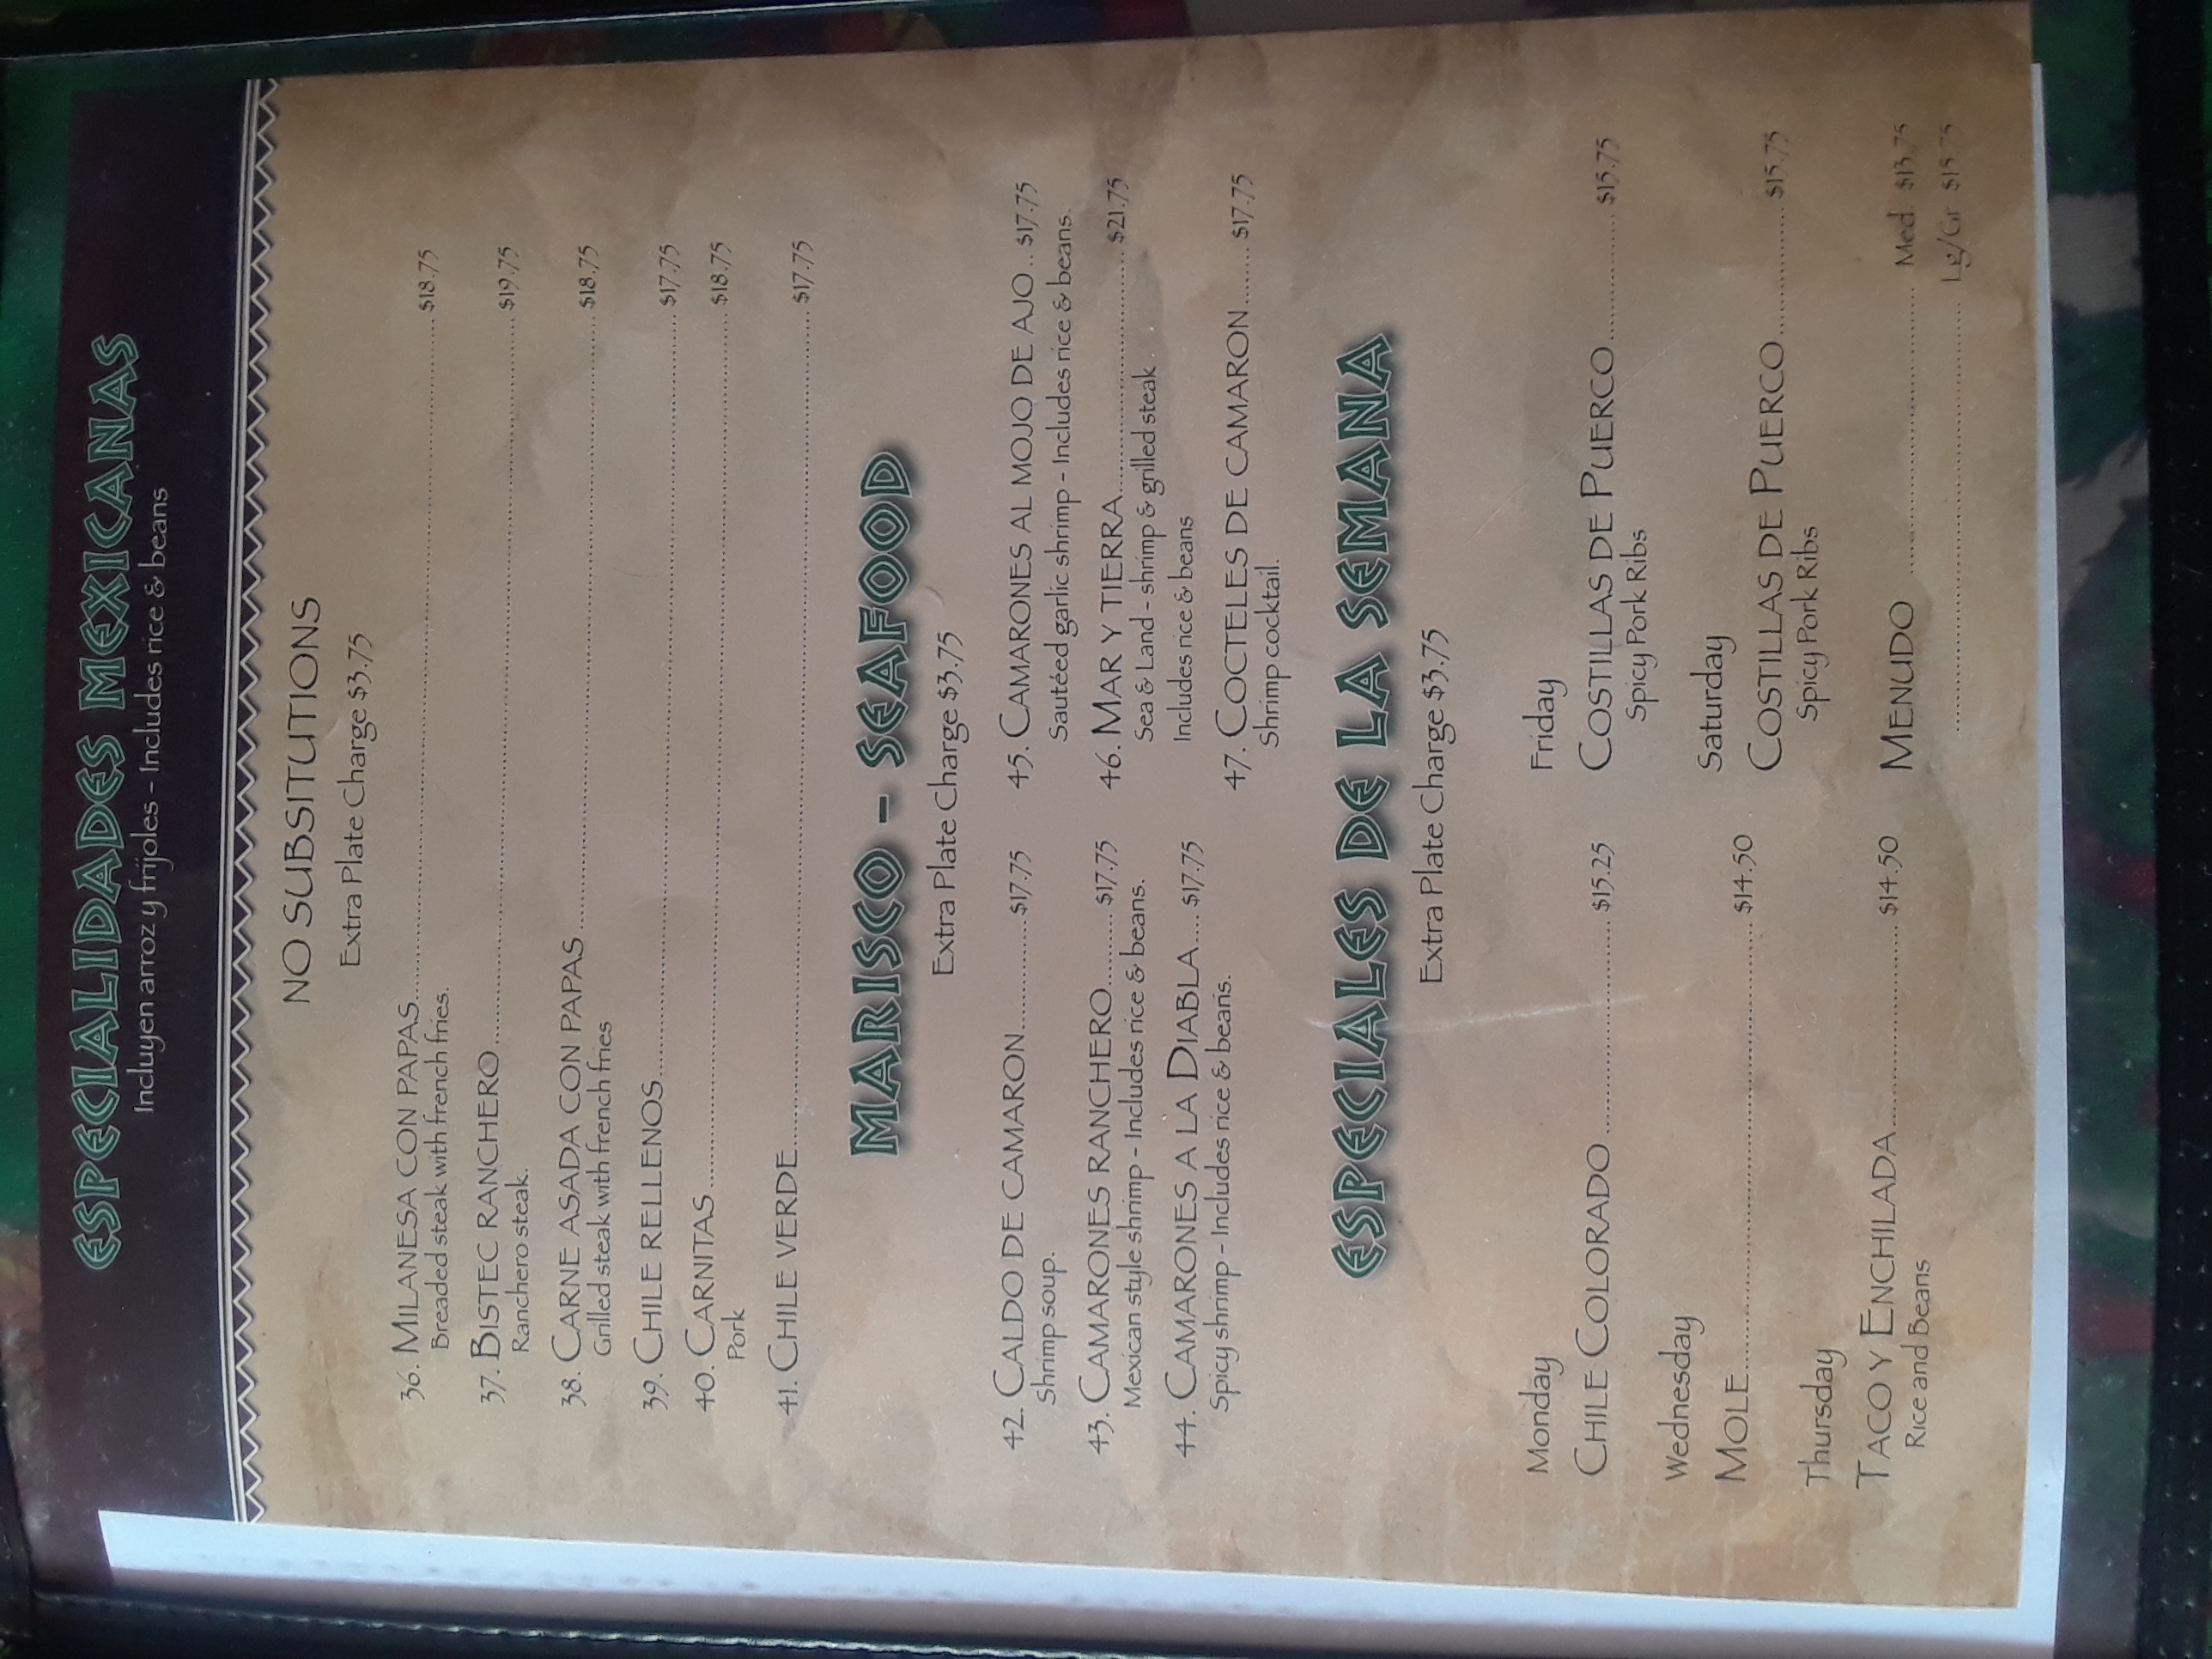 ESPECIALIDADES MEXICANAS
Incluyen arroz y frijoles - Includes rice & beans
NO SUBSITUTIONS
Extra Plate Charge $3.75
36. MILANESA CON PAPAS.......... $18.75
Breaded steak with french fries.
37. BISTEC RANCHERO.......... $19.75
Ranchero steak.
38. CARNE ASADA CON PAPAS.......... $18.75
Grilled steak with french fries
39. CHILE RELLENOS.......... $17.75
40. CARNITAS.......... $18.75
Pork
41. CHILE VERDE.......... $17.75
MARISCO - SEAFOOD
Extra Plate Charge $3.75
42. CALDO DE CAMARON.......... $17.75
Shrimp soup.
43. CAMARONES RANCHERO........ $17.75
Mexican style shrimp - Includes rice & beans.
44. CAMARONES A LA DIABLA.... $17.75
Spicy shrimp - Includes rice & beans.
45. CAMARONES AL MOJO DE AJO .. $17.75
Sautéed garlic shrimp - Includes rice & beans.
46. MAR Y TIERRA.......... $21.75
Sea & Land - shrimp & grilled steak
Includes rice & beans
47. COCTELES DE CAMARON....... $17.75
Shrimp cocktail.
ESPECIALES DE LA SEMANA
Extra Plate Charge $3.75
Monday
CHILE COLORADO .......... $15.25
Wednesday
MOLE.......... $14.50
Thursday
TACO Y ENCHILADA.......... $14.50
Rice and Beans
Friday
COSTILLAS DE PUERCO.......... $15.75
Spicy Pork Ribs
Saturday
COSTILLAS DE PUERCO.......... $15.75
Spicy Pork Ribs
MENUDO .......... Med. $13.75
.......... Lg/Gr $15.75